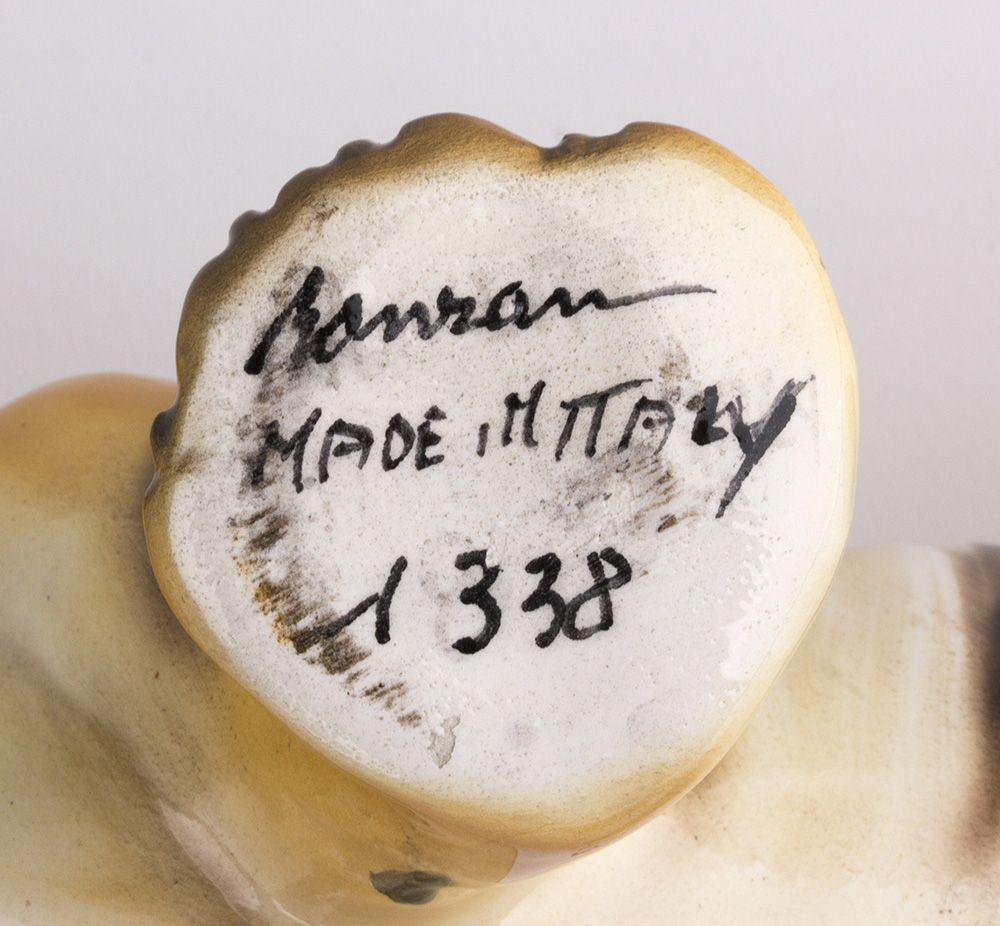 Ronzan
MADE IN ITALY
1338